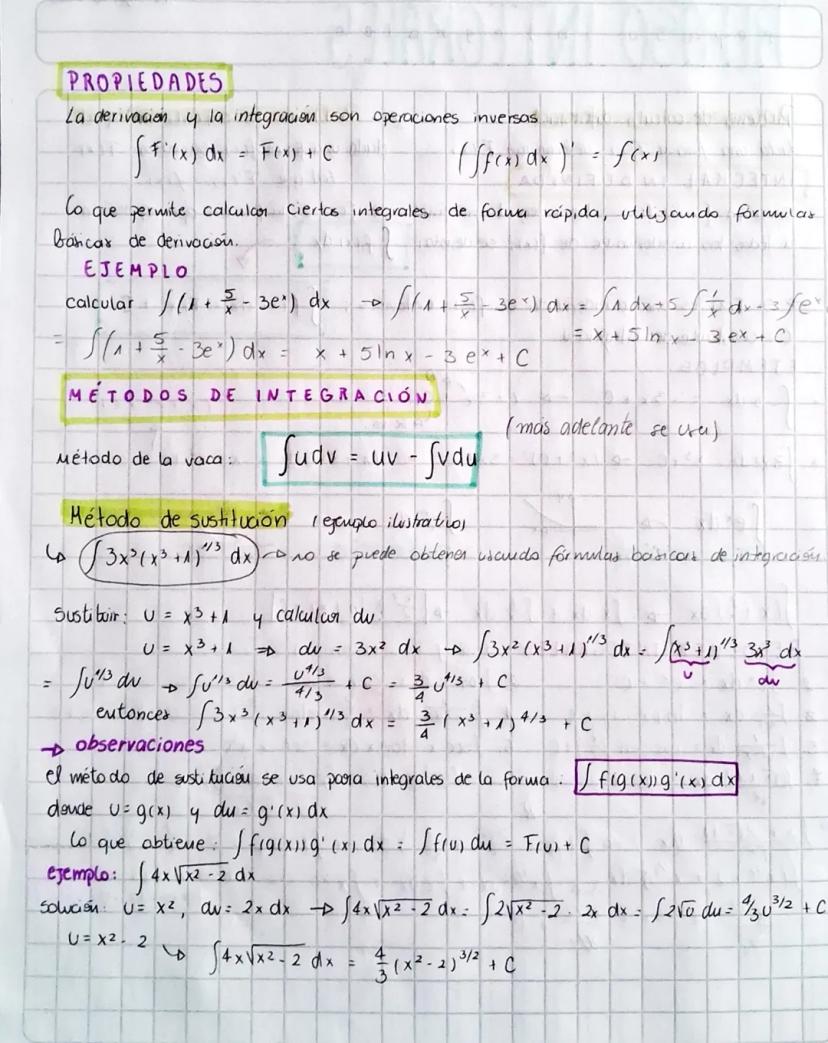 PROPIEDADES
La derivación y la integración son operaciones inversas
∫ F'(x) dx = F(x) + C (∫f(x) dx)' = f(x)
Lo que permite calcular ciertas integrales de forma rápida, utilizando fórmulas
básicas de derivación.
EJEMPLO
calcular ∫(1 + 5/x - 3eˣ) dx → ∫(1 + 5/x - 3eˣ) dx = ∫1 dx + 5 ∫1/x dx - 3∫eˣ
= x + 5 ln x - 3 eˣ + C
= ∫(1 + 5/x - 3eˣ) dx = x + 5 ln x - 3 eˣ + C
MÉTODOS DE INTEGRACIÓN
(más adelante se usa)
Método de la vaca: ∫udv = uv - ∫vdu
Método de sustitución (ejemplo ilustrativo)
↳ ∫3x³(x³+1)^1/3 dx → no se puede obtener usando fórmulas básicas de integración
Sustituir: U = x³+1 y calcular du
U = x³+1 ⇒ du = 3x² dx → ∫3x²(x³+1)^1/3 dx = ∫(x³+1)^1/3 3x³ dx
u du
= ∫U^1/3 du → ∫U^1/3 du = U^4/3 / 4/3 + C = 3/4 U^4/3 + C
entonces ∫3x³(x³+1)^1/3 dx = 3/4 (x³+1)^4/3 + C
→ observaciones
el método de sustitución se usa para integrales de la forma: ∫f(g(x))g'(x) dx
donde U=g(x) y du=g'(x) dx
Lo que obtiene: ∫f(g(x))g'(x) dx = ∫f(u) du = F(u) + C
ejemplo: ∫4x√x2-2 dx
Solución: U = x², du = 2x dx → ∫4x√x²-2 dx = ∫2√x²-2 · 2x dx = ∫2√u du = 4/3 U^3/2 + C
U = x² - 2 ↳ ∫4x√x2-2 dx = 4/3 (x²-2)^3/2 + C